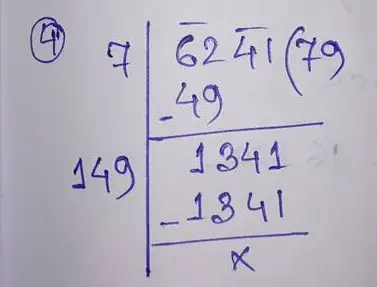 4
7 6241 (79
-49
149 1341
-1341
x